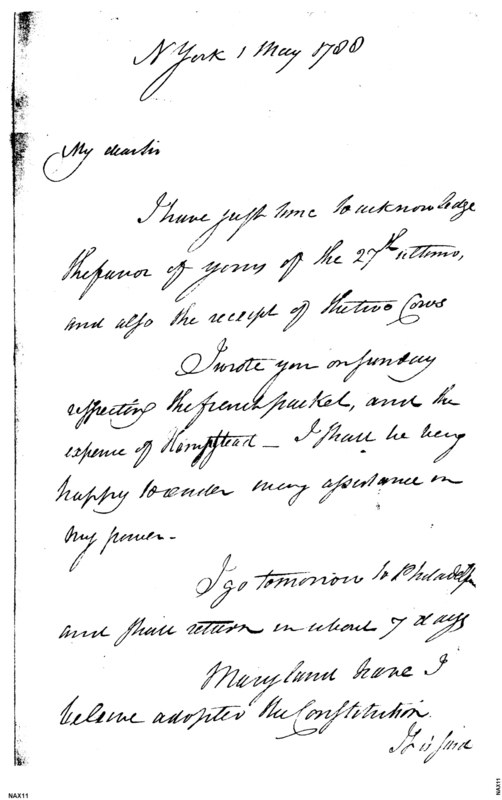 N York 1 May 1788
My dear sir
I have just time to acknowledge
the favor of yours of the 27th ultimo,
and also the receipt of the two Cows
I wrote you on sunday
respecting the french packet, and the
expence of Hampstead — I shall be very
happy to render every assistance in
my power —
I go tomorrow to Philadelp
and shall return in about 7 days
Maryland have I
beleive adopted the Constitution.
It is said
NAX11
NAX11